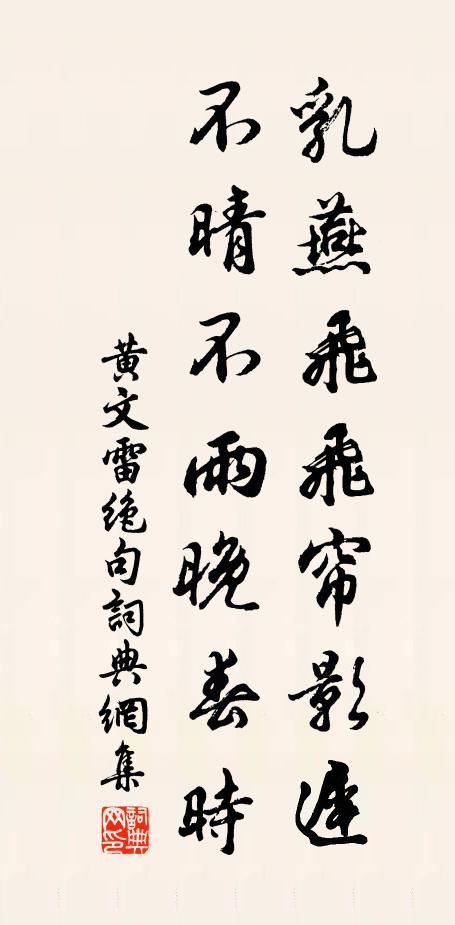 乳燕飛飛帘影遲
不晴不雨晚春時
黄文雷绝句詞典網集
詞典网印